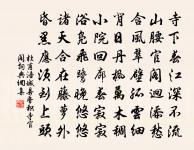 寺下春江深不流
山腰官閣迥添愁
含風翠壁孤雲細
背日丹楓萬木稠
小院迴廊春寂寂
浴鳧飛鷺晚悠悠
諸天合在藤蘿外
昏黑應須到上頭
杜甫涪城縣香積寺官
閣詞典網集